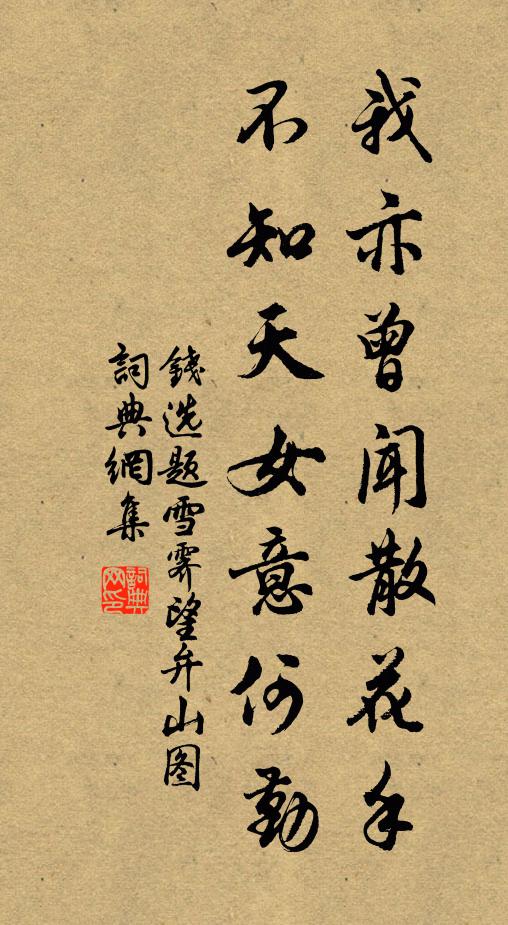 我亦曾闻散花手
不知天女意何勤
錢选题雪霁望弁山图
詞典網集
詞典网印